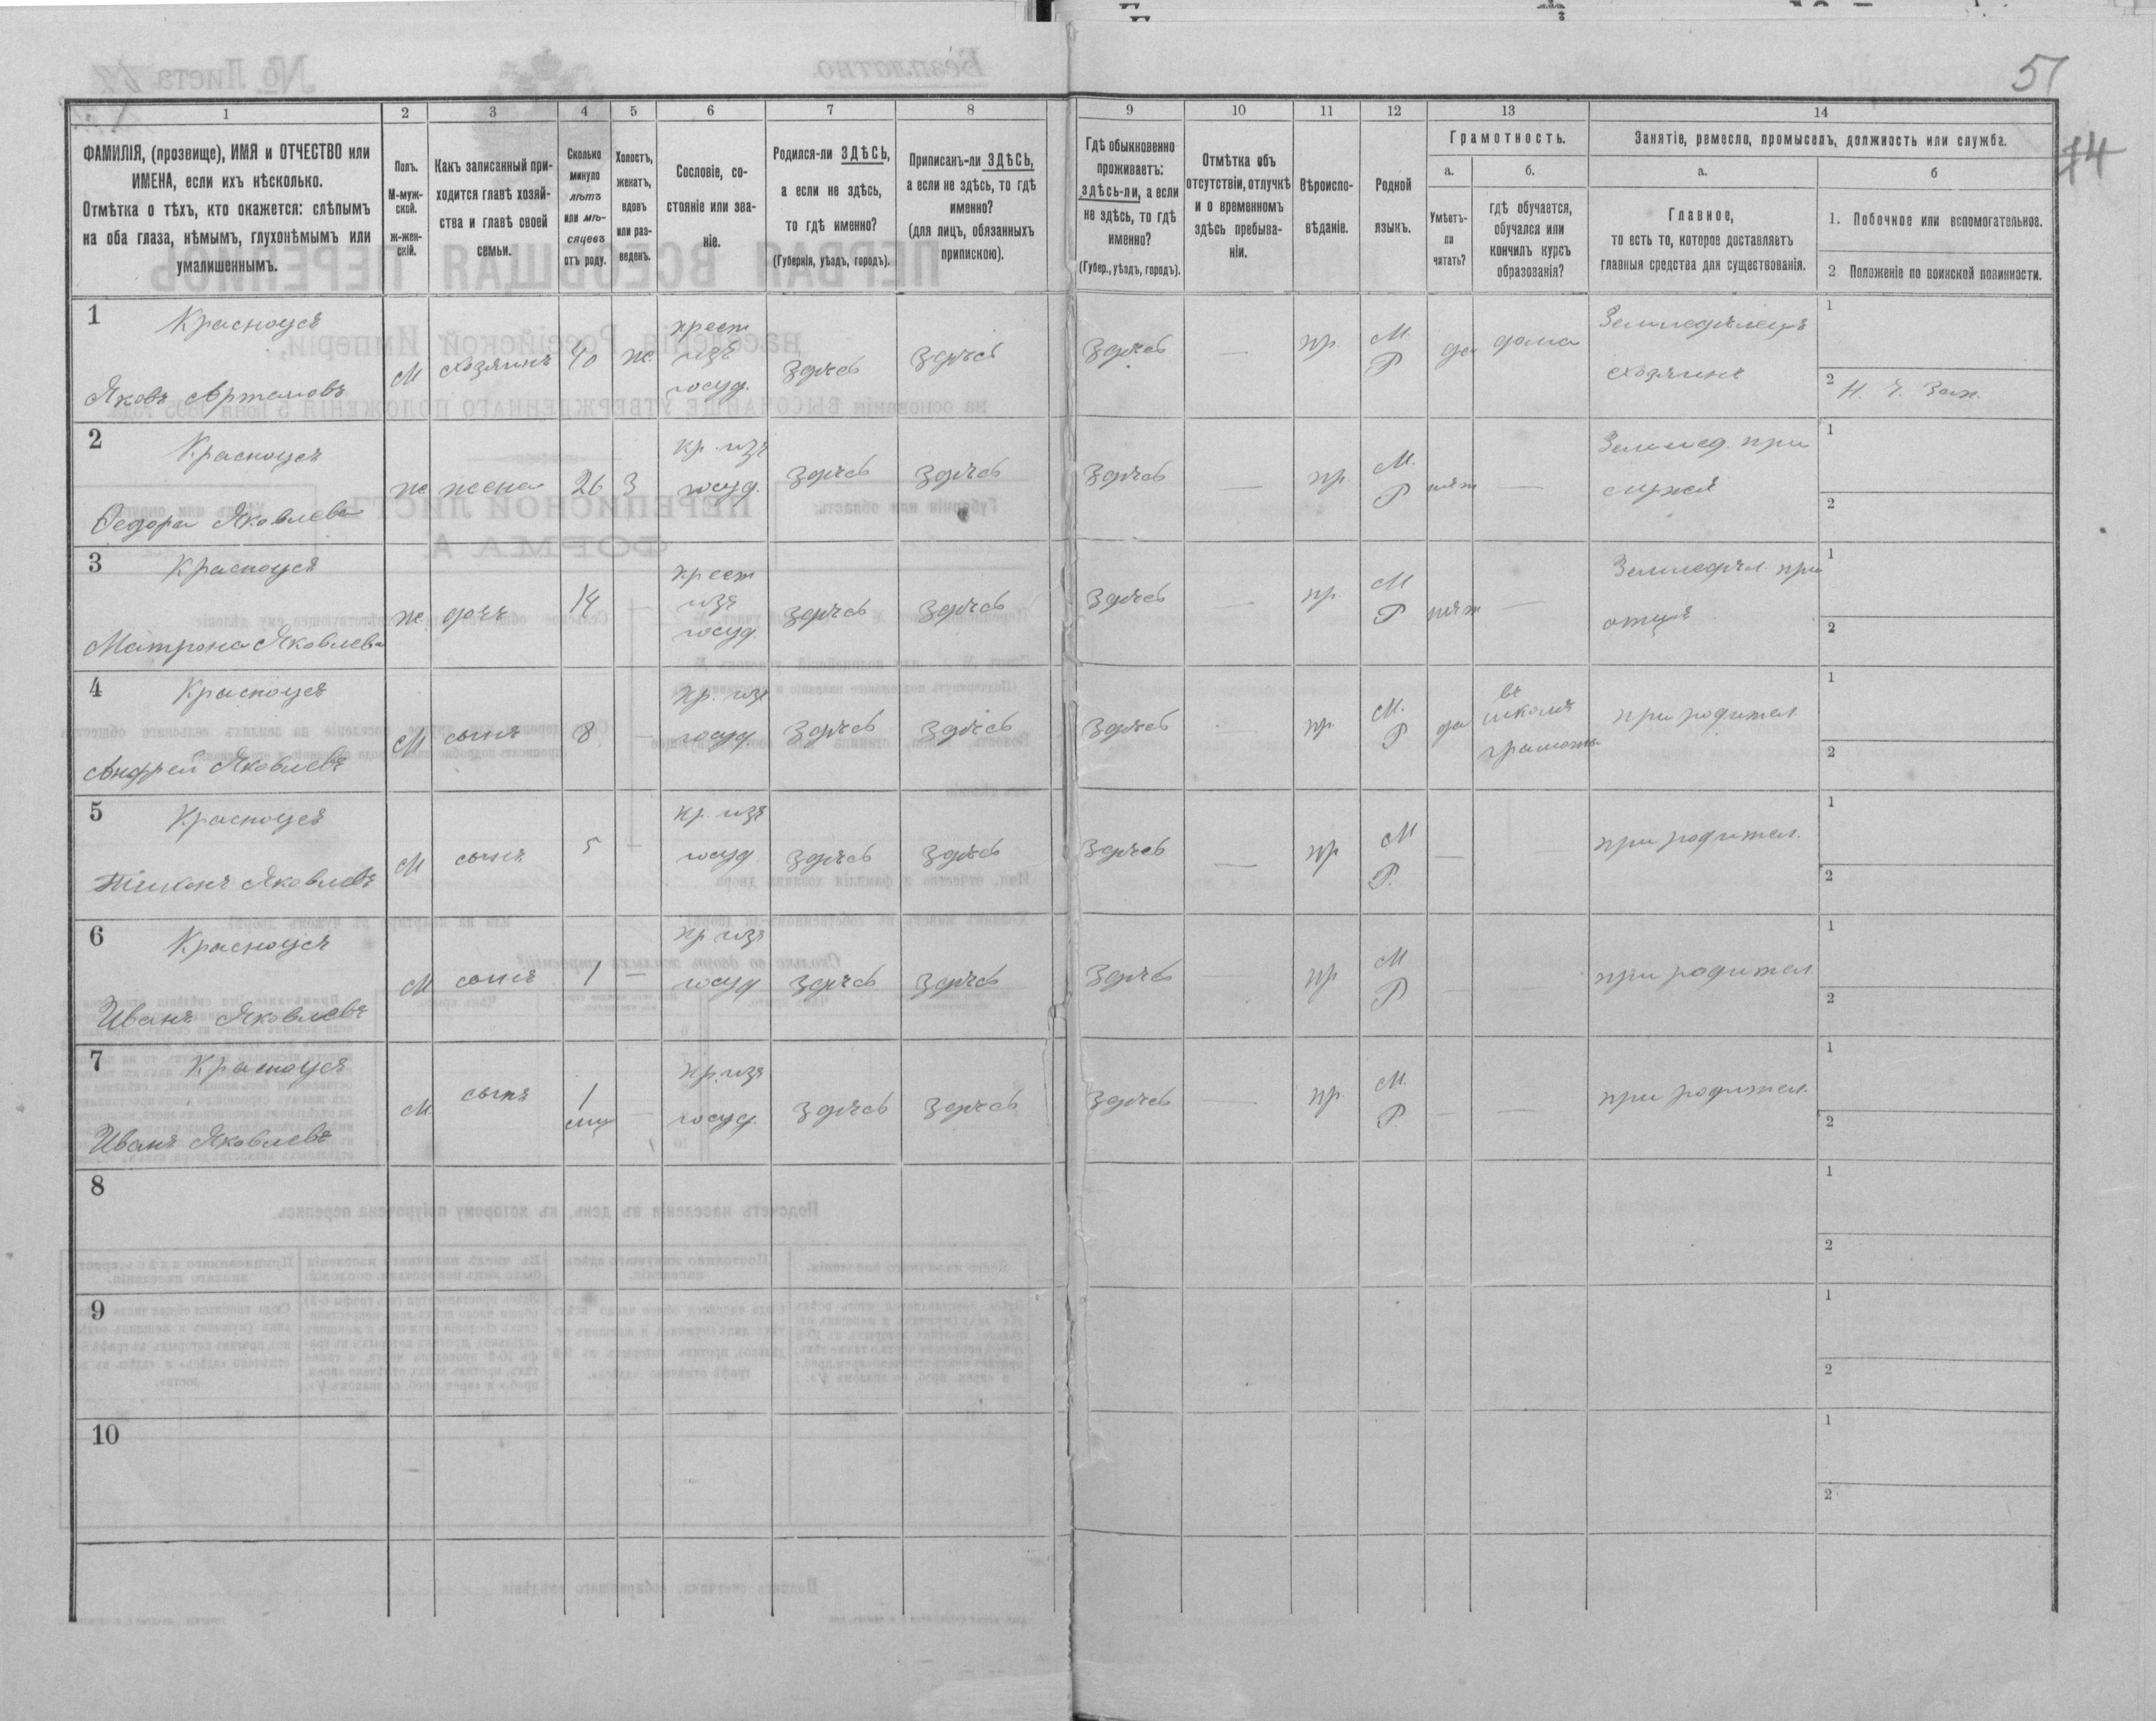 51
74
1 2 3 4 5 6 7 8 9 10 11 12 13 14
ФАМИЛІЯ, (прозвище), ИМЯ и ОТЧЕСТВО или
ИМЕНА, если ихъ нѣсколько.
Отмѣтка о тѣхъ, кто окажется: слѣпымъ
на оба глаза, нѣмымъ, глухонѣмымъ или
умалишеннымъ.
Полъ.
М-муж-
ской.
ж-жен-
скій.
Какъ записанный при-
ходится главѣ хозяй-
ства и главѣ своей
семьи.
Сколько
минуло
лѣтъ
или мѣ-
сяцевъ
отъ роду.
Холостъ,
женатъ,
вдовъ
или раз-
веденъ.
Сословіе, со-
стояніе или зва-
ніе.
Родился-ли ЗДѢСЬ,
а если не здѣсь,
то гдѣ именно?
(Губернія, уѣздъ, городъ).
Приписанъ-ли ЗДѢСЬ,
а если не здѣсь, то гдѣ
именно?
(для лицъ, обязанныхъ
припискою).
Гдѣ обыкновенно
проживаетъ:
здѣсь-ли, а если
не здѣсь, то гдѣ
именно?
(Губер., уѣздъ, городъ).
Отмѣтка объ
отсутствіи, отлучкѣ
и о временномъ
здѣсь пребыва-
ніи.
Вѣроиспо-
вѣданіе.
Родной
языкъ.
Грамотность.
а.
Умѣетъ-
ли
читать?
б.
гдѣ обучается,
обучался или
кончилъ курсъ
образованія?
Занятіе, ремесло, промыселъ, должность или служба.
а.
Главное,
то есть то, которое доставляетъ
главныя средства для существованія.
б
1. Побочное или вспомогательное.
2 Положеніе по воинской повинности.
1
Красноусъ
Яковъ Артамовъ
М
хозяинъ
40
ж
крест
изъ
госуд.
здѣсь
здѣсь
здѣсь
—
пр.
М.
Р
да
дома
Земледѣлецъ
хозяинъ
1
2 Н. Ч. Зап.
2
Красноусъ
Федора Яковлева
ж
жена
26
З
кр. изъ
госуд.
здѣсь
здѣсь
здѣсь
—
пр
М.
Р
нѣт
—
Землед. при
мужѣ
1
2
3
Красноусъ
Матрона Яковлева
ж
дочь
14
—
крест
изъ
госуд.
здѣсь
здѣсь
здѣсь
—
пр.
М
Р
нѣт
—
Земледѣл. при
отцѣ
1
2
4
Красноусъ
Андрей Яковлевъ
М
сынъ
8
—
кр. изъ
госуд.
здѣсь
здѣсь
здѣсь
—
пр.
М.
Р
да
въ
школѣ
грамоты
при родител.
1
2
5
Красноусъ
Тихонъ Яковлевъ
М
сынъ
5
—
кр. изъ
госуд.
здѣсь
здѣсь
здѣсь
—
пр
М
Р.
—
при родител.
1
2
6
Красноусъ
Иванъ Яковлевъ
М
сынъ
1
—
кр. изъ
госуд
здѣсь
здѣсь
здѣсь
пр
М
Р
—
при родител.
1
2
7
Красноусъ
Иванъ Яковлевъ
М
сынъ
1
мц
—
кр. изъ
госуд.
здѣсь
здѣсь
здѣсь
—
пр.
М.
Р.
—
—
при родител.
1
2
8
1
2
9
1
2
10
1
2